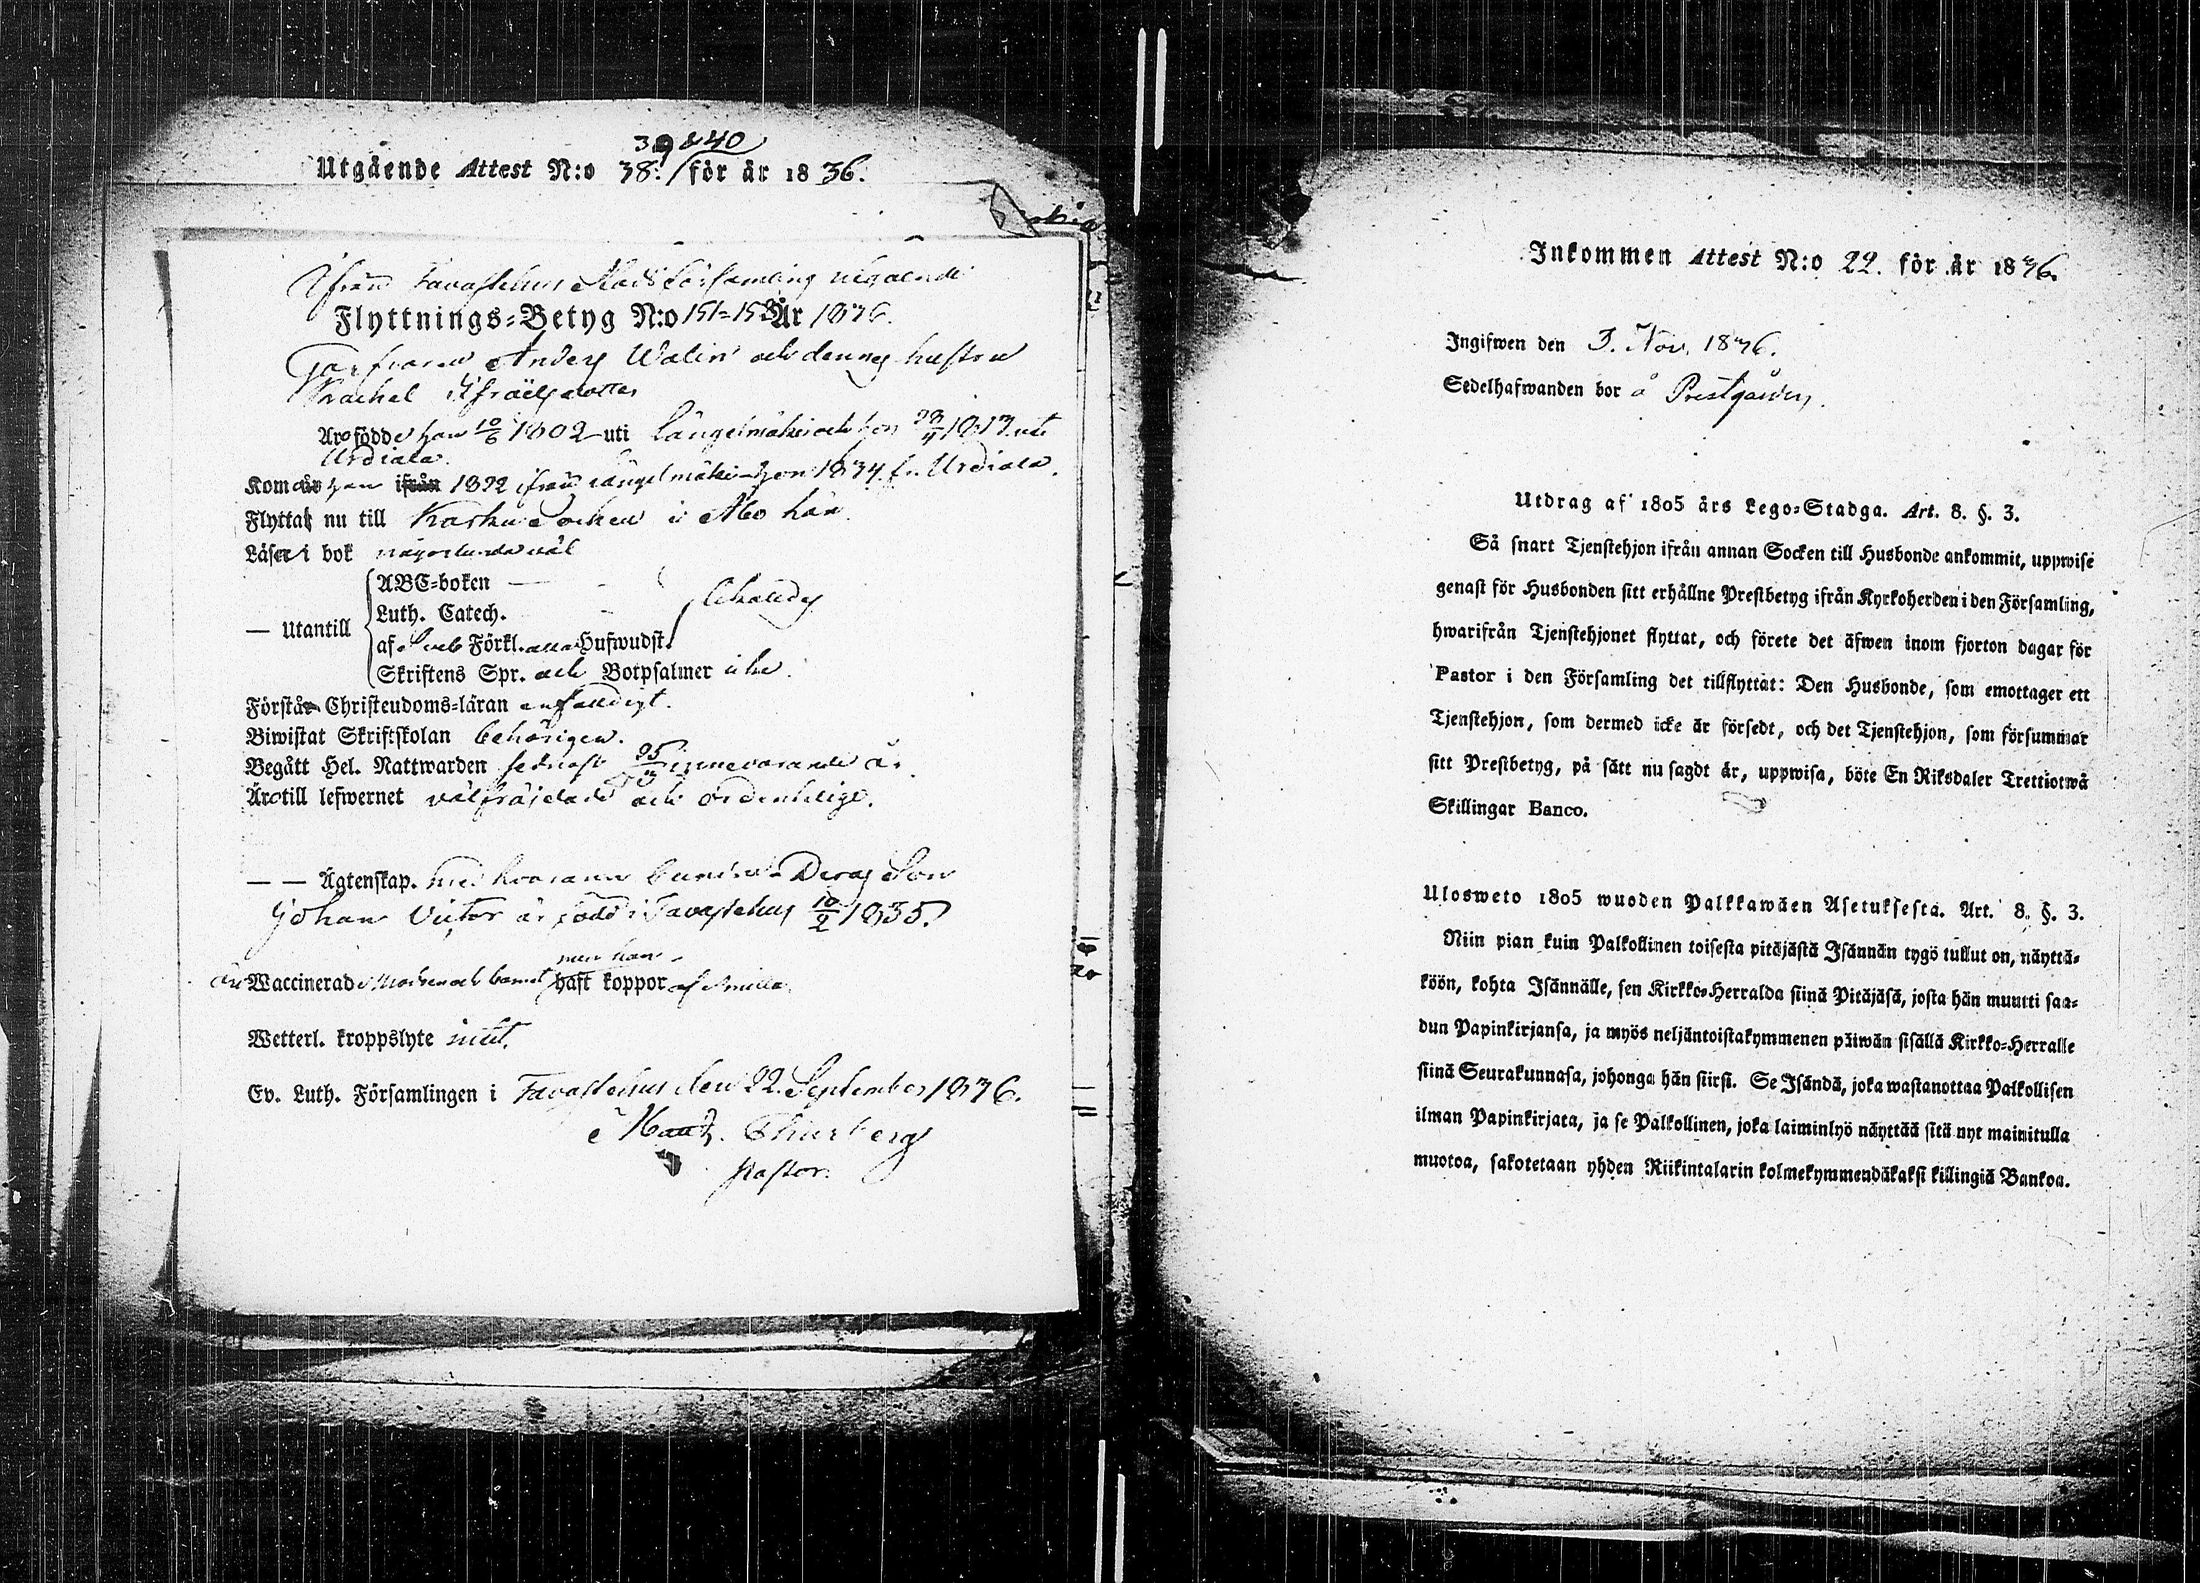 39 & 40
Utgående Attest N:o 38. för år 1836.
Ifrån Tavastehus Stads Församling utgående
Flyttnings-Betyg N:o 151-153 År 1836.
Garfvaren Anders Walin och dennes hustru
Rachel Israëlsdotter
Äro födde han 10/6 1802 uti Längelmäki och hon 23/4 1813 uti
Urdiala.
Kom han 1832 ifrån Längelmäki hon 1834 fr. Urdiala.
Flytta nu till Karku Socken i Åbo län
Läser i bok någorlunda väl
ABC-boken —
Luth. Catech.
— Utantill
af Sveb. Förkl. Hufwudst.
Skriftens Spr. och Botpsalmer icke.
Förstå Christendoms-läran enfaldigt.
Biwistat Skriftskolan behörigen.
Begått Hel. Nattwarden sednast innevarande år
Äro till lefwernet välfräjdade och ordentelige.
— — Ägtenskap. med hvarann Deras Son
Johan Victor är född i Tavastehus 10/2 1835.
men han
äro Waccinerade Modren och barnet haft koppor
Wetterl. kroppslyte intet.
Ev. Luth. Församlingen i Tavastehus den 22 September 1836.
Thurberg
Pastor.
Inkommen Attest N:o 22. för år 1836.
Ingifwen den 3. Nov. 1836.
Sedelhafwanden bor å Prestgården.
Utdrag af 1805 års Lego-Stadga. Art. 8. §. 3.
Så snart Tjenstehjon ifrån annan Socken till Husbonde ankommit, uppwise
genast för Husbonden sitt erhållne Prestbetyg ifrån Kyrkoherden i den Församling,
hwarifrån Tjenstehjonet flyttat, och förete det äfwen inom fjorton dagar för
Pastor i den Församling det tillflyttat: Den Husbonde, som emottager ett
Tjenstehjon, som dermed icke är försedt, och det Tjenstehjon, som försummar
sitt Prestbetyg, på sätt nu sagdt är, uppwisa, böte En Riksdaler Trettiotwå
Skillingar Banco.
Ulosweto 1805 wuoden Palkkawäen Asetuksesta. Art. 8. §. 3.
Niin pian kuin Palkollinen toisesta pitäjästä Isännän tygö tullut on, näyttä-
köön, kohta Isännälle, sen Kirkko-Herralda siinä Pitäjäsä, josta hän muutti saa-
dun Papinkirjansa, ja myös neljäntoistakymmenen päiwän sisällä Kirkko-Herralle
siinä Seurakunnasa, johonga hän siirsi. Se Isändä, joka wastanottaa Palkollisen
ilman Papinkirjata, ja se Palkollinen, joka laiminlyö näyttää sitä nyt mainitulla
muotoa, sakotetaan yhden Riikintalarin kolmekymmendäkaksi killingiä Bankoa.